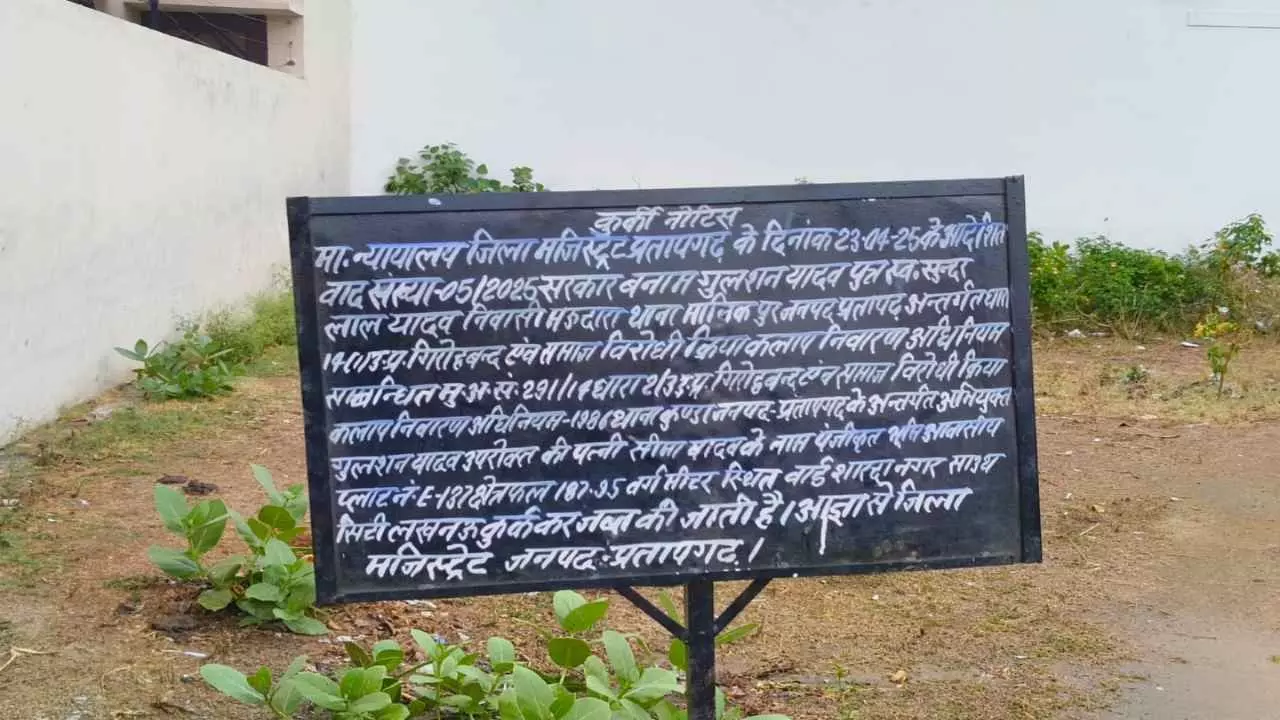 कुर्की नोटिस
मा. न्यायालय जिला मजिस्ट्रेट प्रतापगढ़ के दिनांक 23-04-25 के आदेशित
वाद संख्या-05/2025 सरकार बनाम गुलशन यादव पुत्र स्व. सुन्दर
लाल यादव निवासी मऊदारा थाना मानिकपुर जनपद प्रतापढ़ अन्तर्गत धारा
14(1) उ.प्र. गिरोहबन्द एंव समाज विरोधी क्रिया कलाप निवारण अधिनियम
सम्बन्धित मु.अ.सं. 291/14 धारा 2/3 उ.प्र. गिरोहबन्द एंव समाज विरोधी क्रिया
कलाप निवारण अधिनियम-1986 थाना कुण्डा जनपद-प्रतापगढ़ के अन्तर्गत अभियुक्त
गुलशन यादव उपरोक्त की पत्नी सीमा यादव के नाम पंजीकृत भूमि आवासीय
प्लाट नं. E-137 क्षेत्रफल 187.95 वर्ग मीटर स्थित वार्ड शारदा नगर साउथ
सिटी लखनऊ कुर्क कर जब्त की जाती है। आज्ञा से जिला
मजिस्ट्रेट जनपद-प्रतापगढ़।